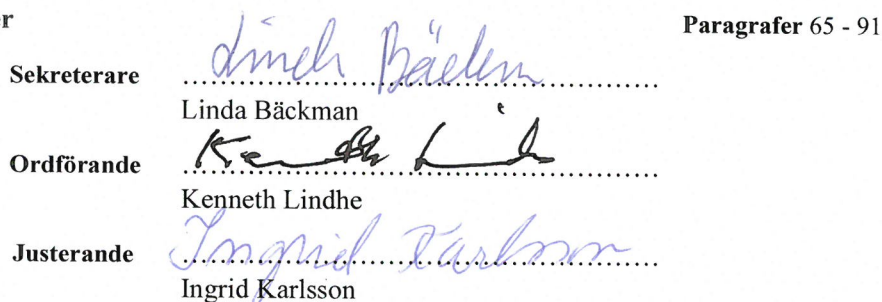 er Paragrafer 65 - 91
Sekreterare Linda Bäckman
Linda Bäckman
Ordförande Kenneth Lindhe
Kenneth Lindhe
Justerande Ingrid Karlsson
Ingrid Karlsson